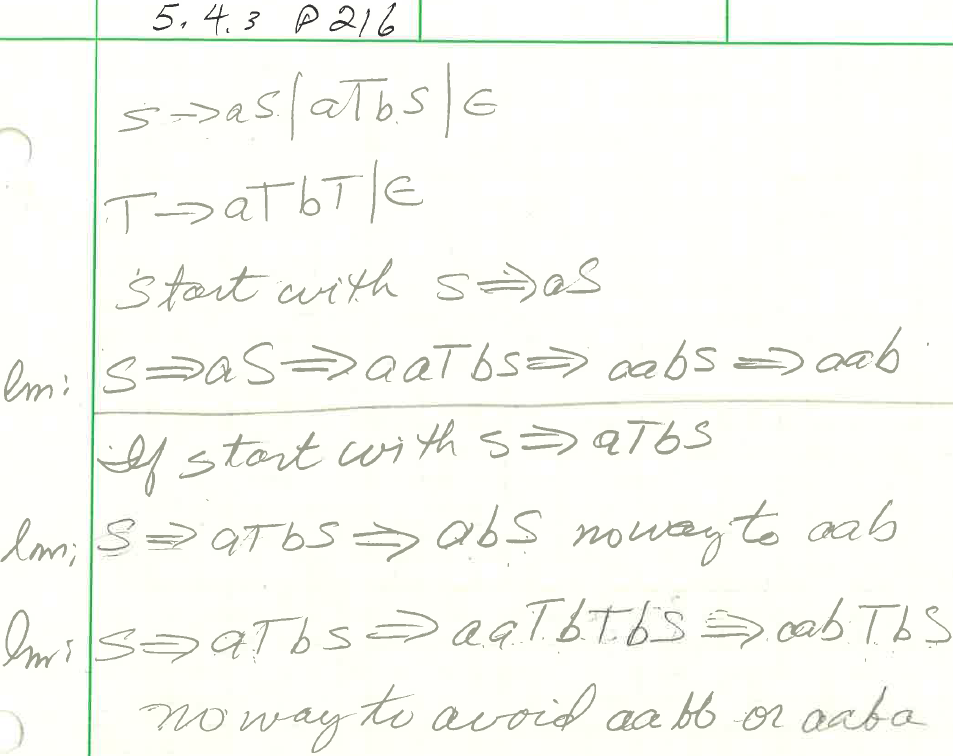 5.4.3 P 216
S→aS|aTbS|ε
T→aTbT|ε
Start with S⇒aS
lm: S⇒aS⇒aaTbS⇒aabS⇒aab
If start with S⇒aTbS
lm: S⇒aTbS⇒abS no way to aab
lm: S⇒aTbS⇒aaTbTbS⇒aabTbS
no way to avoid aabb or aaba